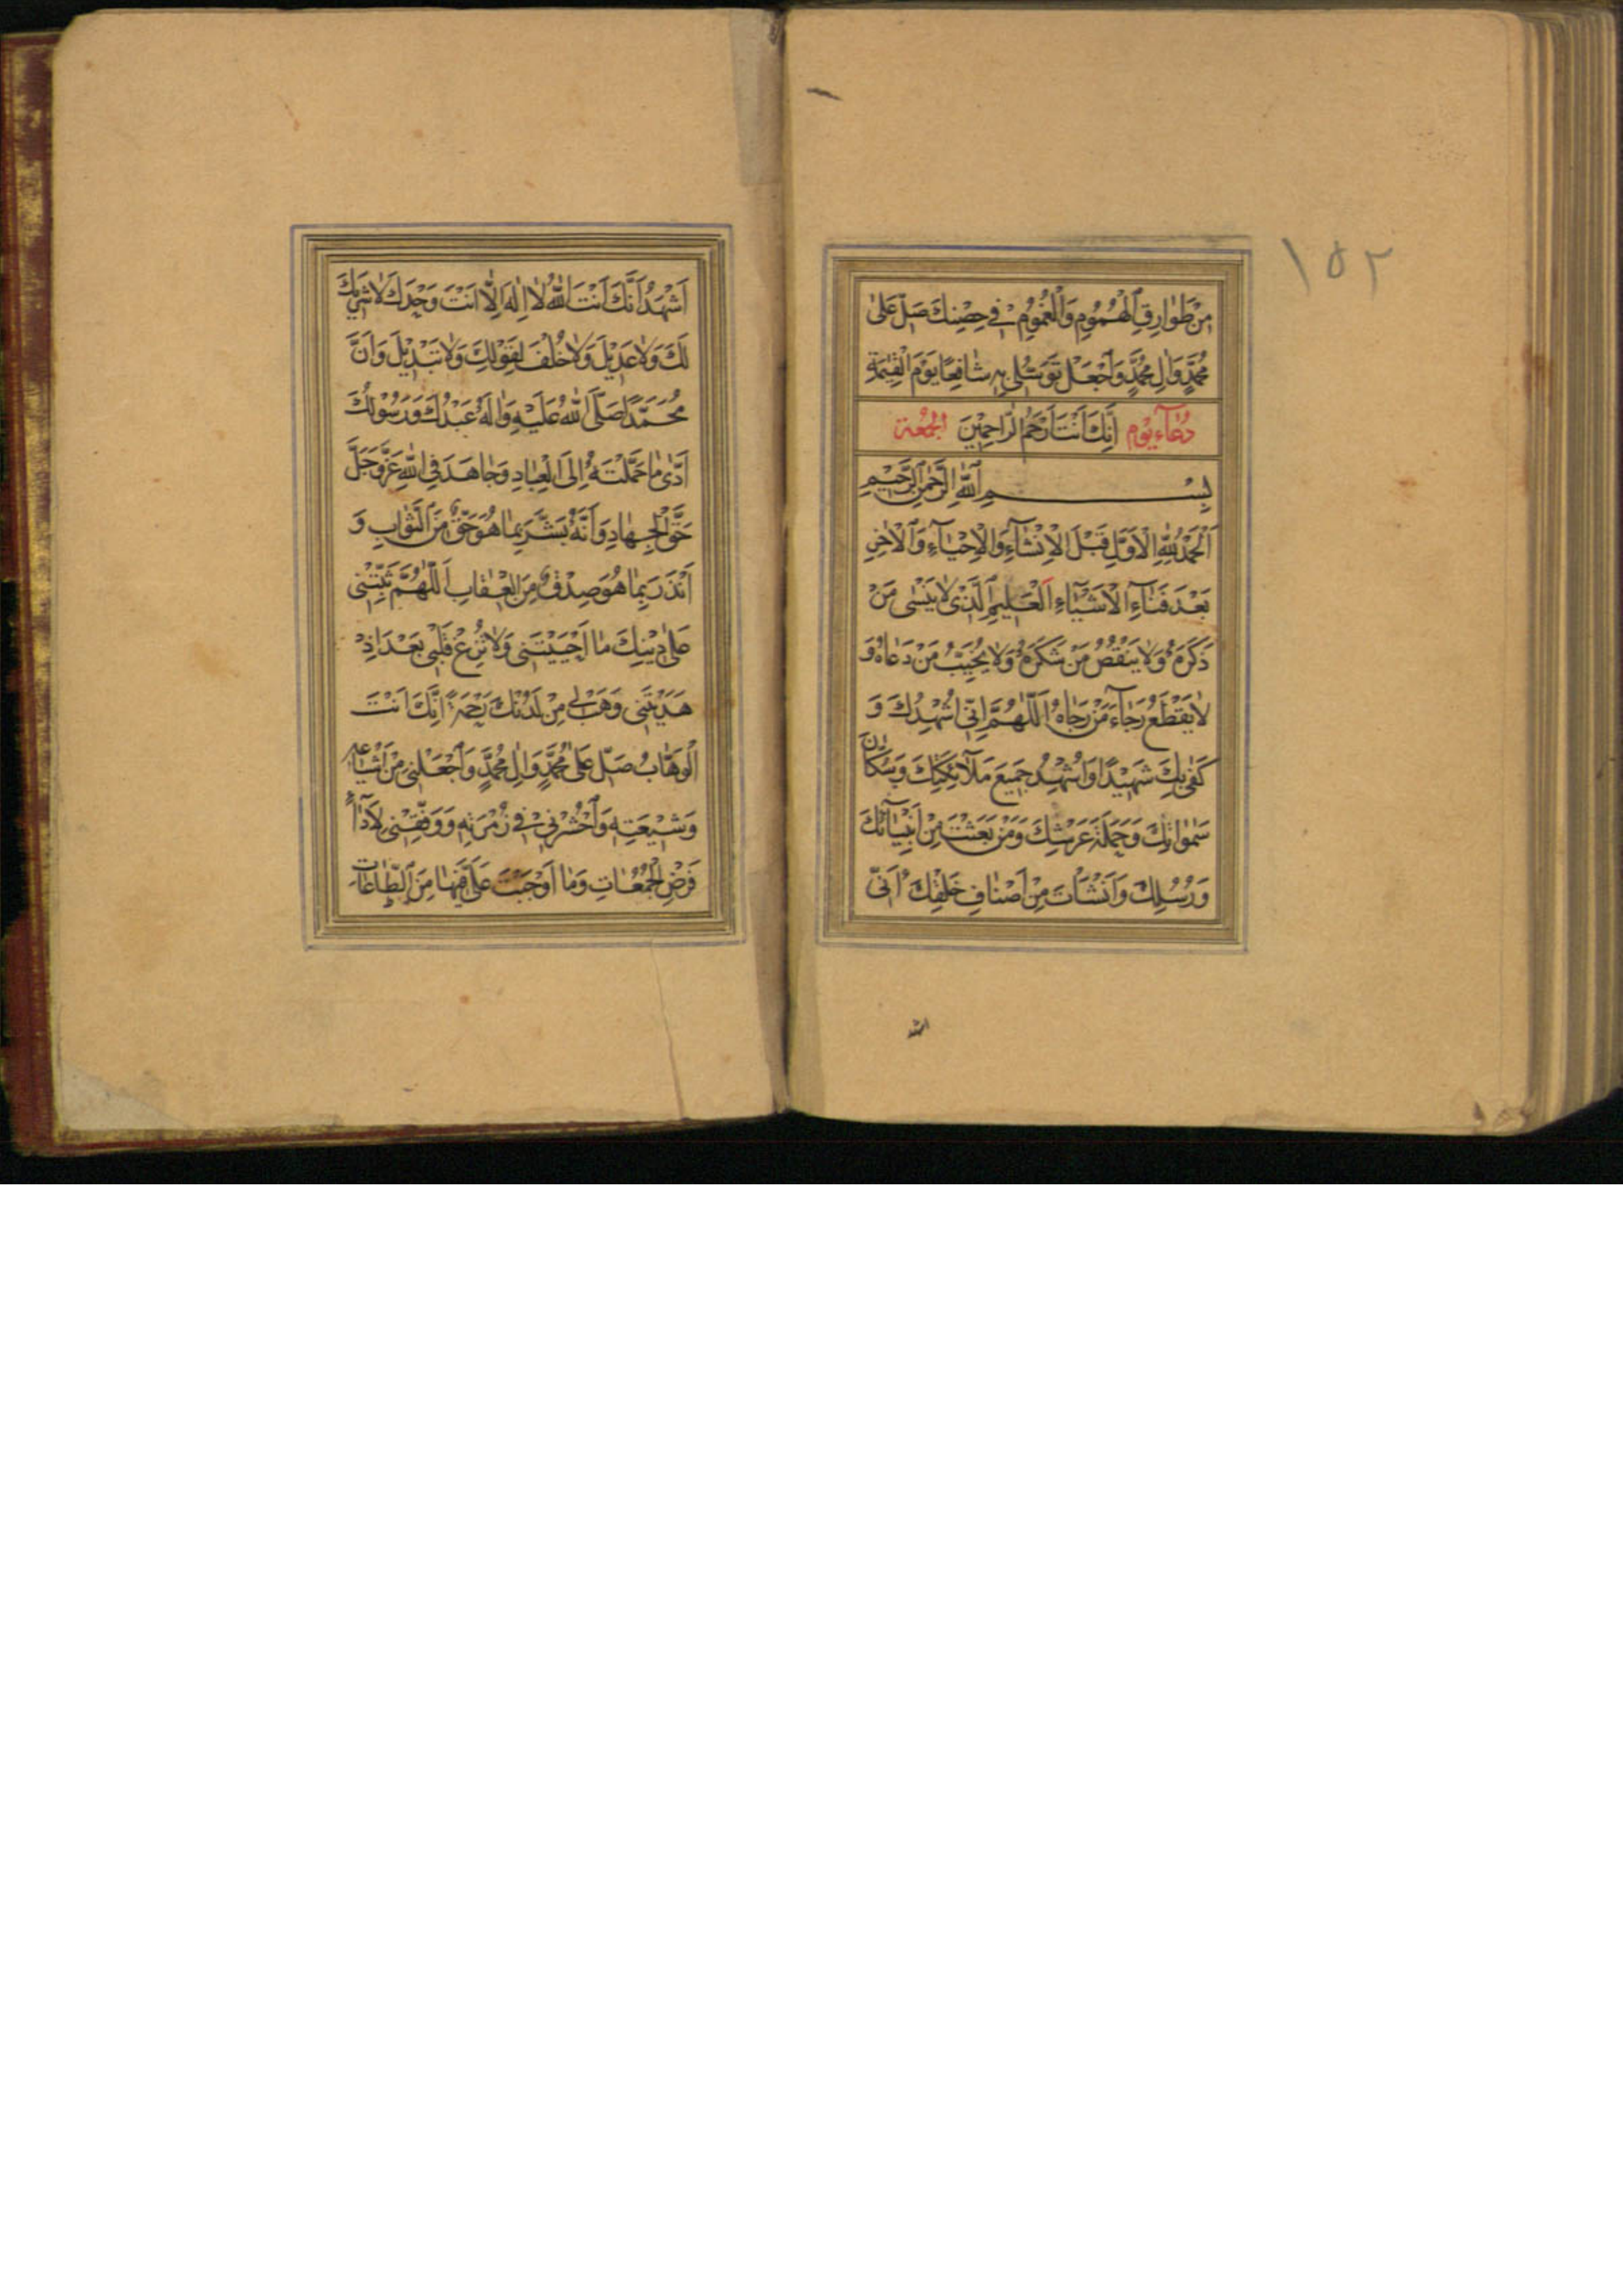 ١٥٢
مِنْ طَوارِقِ الْهُمُومِ وَالْغُمُومِ فِي حِصْنِكَ صَلِّ عَلىٰ
مُحَمَّدٍ وَاٰلِ مُحَمَّدٍ وَاجْعَلْ تَوَسُّلِي بِهِ شٰافِعًا يَوْمَ الْقِيٰمَةِ
دُعٰآءِ يَوْم اِنَّكَ اَنْتَ اَرْحَمُ الرّٰاحِمِيْنَ الجُمْعَة
بِسْمِ اللّٰهِ الرَّحْمٰنِ الرَّحِيْمِ
اَلْحَمْدُ لِلّٰهِ الْاَوَّلِ قَبْلَ الْاِنْشٰآءِ وَالْاِحْيٰآءِ وَالْاٰخِرِ
بَعْدَ فَنٰآءِ الْاَشْيٰآءِ اَلْعَلِيمِ الَّذِىْ لٰا يَنْسٰى مَنْ
ذَكَرَهُ وَلٰا يَنْقُصُ مَنْ شَكَرَهُ وَلٰا يُخَيِّبُ مَنْ دَعٰاهُ وَ
لٰا يَقْطَعُ رَجٰآءَ مَنْ رَجٰاهُ اَللّٰهُمَّ اِنِّى اُشْهِدُكَ وَ
كَفٰى بِكَ شَهِيْدًا وَاُشْهِدُ جَمِيْعَ مَلٰآئِكَتِكَ وَسُكّٰانَ
سَمٰوٰاتِكَ وَحَمَلَةَ عَرْشِكَ وَمَنْ بَعَثْتَ مِنْ اَنْبِيٰآئِكَ
وَرُسُلِكَ وَاَنْشَأْتَ مِنْ اَصْنٰافِ خَلْقِكَ اَنِّى
اَشْهَدُ اَنَّكَ اَنْتَ اللّٰهُ لٰا اِلٰهَ اِلّٰا اَنْتَ وَحْدَكَ لٰا شَرِيْكَ
لَكَ وَلٰا عَدِيْلَ وَلٰا خُلْفَ لِقَوْلِكَ وَلٰا تَبْدِيْلَ وَاَنَّ
مُحَمَّدًا صَلَّى اللّٰهُ عَلَيْهِ وَاٰلِهِ عَبْدُكَ وَرَسُوْلُكَ
اَدّٰى مٰا حَمَّلْتَهُ اِلَى الْعِبٰادِ وَجٰاهَدَ فِى اللّٰهِ عَزَّ وَجَلَّ
حَقَّ الْجِهٰادِ وَاَنَّهُ بَشَّرَ بِمٰا هُوَ حَقٌّ مِنَ الثَّوٰابِ وَ
اَنْذَرَ بِمٰا هُوَ صِدْقٌ مِنَ الْعِقٰابِ اَللّٰهُمَّ ثَبِّتْنِى
عَلٰى دِيْنِكَ مٰا اَحْيَيْتَنِى وَلٰا تُزِغْ قَلْبِى بَعْدَ اِذْ
هَدَيْتَنِى وَهَبْ لِى مِنْ لَدُنْكَ رَحْمَةً اِنَّكَ اَنْتَ
الْوَهّٰابُ صَلِّ عَلٰى مُحَمَّدٍ وَاٰلِ مُحَمَّدٍ وَاجْعَلْنِى مِنْ اَتْبٰاعِهِ
وَشِيْعَتِهِ وَاحْشُرْنِى فِى زُمْرَتِهِ وَوَفِّقْنِى لِاَدٰآءِ
فَرْضِ الْجُمُعٰاتِ وَمٰا اَوْجَبْتَ عَلَىَّ فِيْهٰا مِنَ الطّٰاعٰاتِ